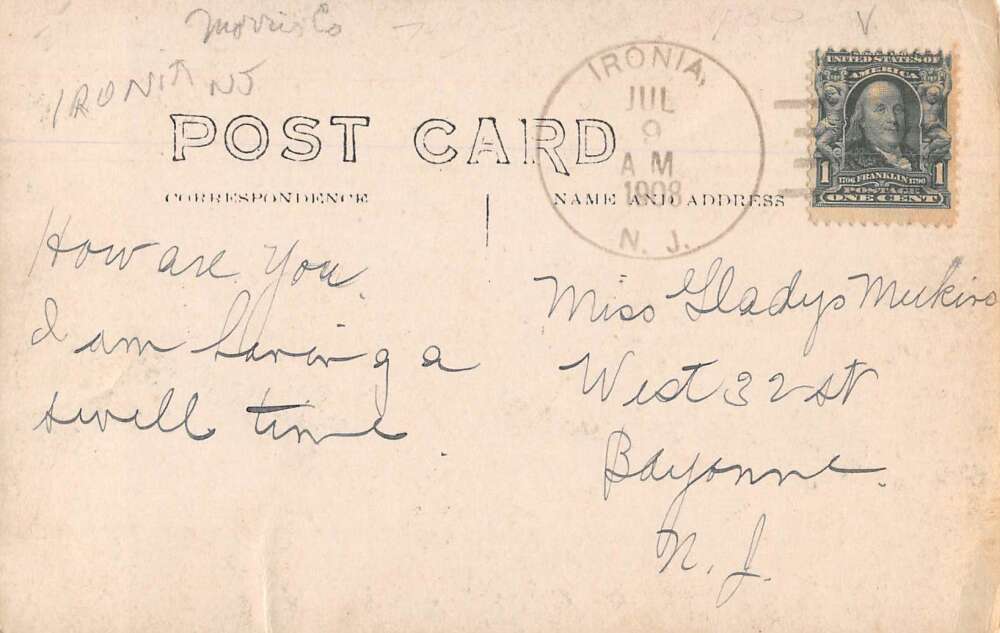 Morris Co
IRONIA NJ
POST CARD
CORRESPONDENCE
NAME AND ADDRESS
IRONIA,
JUL
9
AM
1908
N. J.
UNITED STATES OF
AMERICA
1 1706 FRANKLIN 1790 1
POSTAGE
ONE CENT
How are you
I am having a
swell time
Miss Gladys Meekins
West 32 st
Bayonne.
N. J.